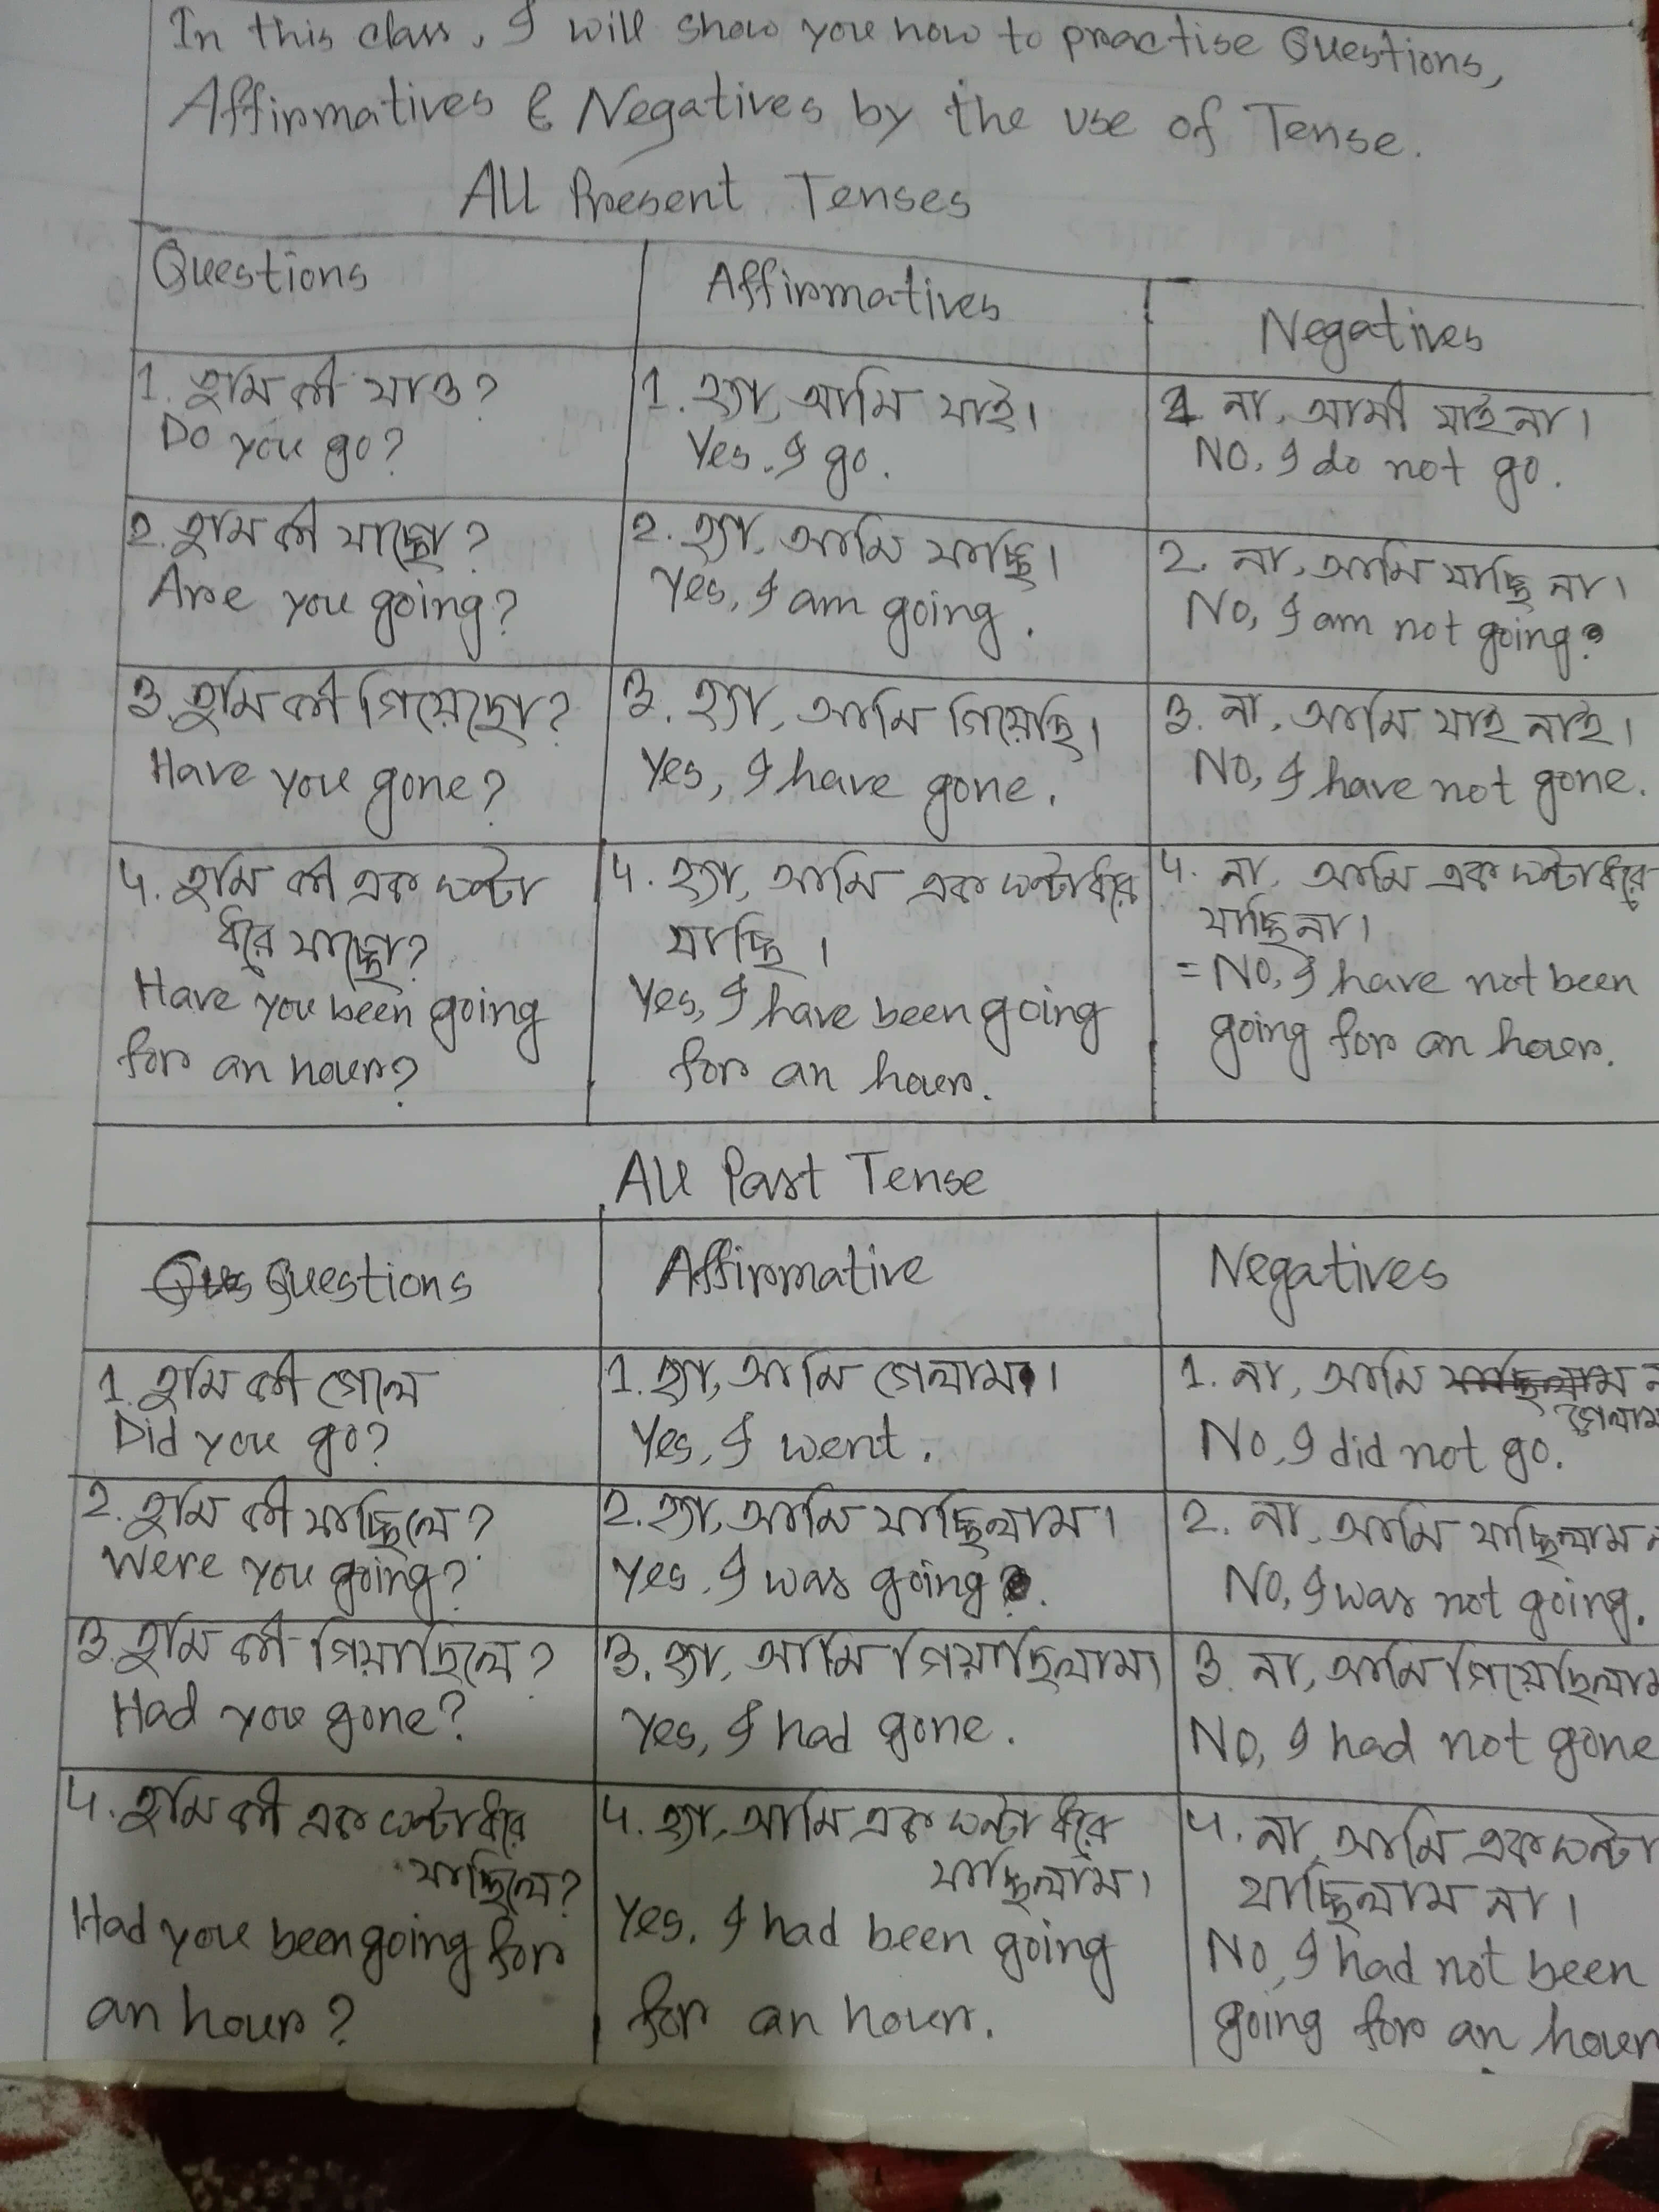 In this class, I will show you how to practise Questions,
Affirmatives & Negatives by the use of Tense.
All Present Tenses
Questions
Affirmatives
Negatives
1. তুমি কী যাও?
Do you go?
1. হ্যা, আমি যাই।
Yes, I go.
1. না, আমী যাই না।
No, I do not go.
2. তুমি কী যাচ্ছো?
Are you going?
2. হ্যা, আমি যাচ্ছি।
Yes, I am going.
2. না, আমি যাচ্ছি না।
No, I am not going?
3. তুমি কী গিয়েছো?
Have you gone?
3. হ্যা, আমি গিয়েছি।
Yes, I have gone.
3. না, আমি যাই নাই।
No, I have not gone.
4. তুমি কী এক ঘন্টা
ধরে যাচ্ছো?
Have you been going
for an hour?
4. হ্যা, আমি এক ঘন্টা ধরে
যাচ্ছি।
Yes, I have been going
for an hour.
4. না, আমি এক ঘন্টা ধরে
যাচ্ছি না।
= No, I have not been
going for an hour.
All Past Tense
Questions
Affirmative
Negatives
1. তুমি কী গেলে
Did you go?
1. হ্যা, আমি গেলাম।
Yes, I went.
1. না, আমি
গেলাম
No, I did not go.
2. তুমি কী যাচ্ছিলে?
Were you going?
2. হ্যা, আমি যাচ্ছিলাম।
Yes, I was going.
2. না, আমি যাচ্ছিলাম
No, I was not going.
3. তুমি কী গিয়াছিলে?
Had you gone?
3. হ্যা, আমি গিয়াছিলাম।
Yes, I had gone.
3. না, আমি গিয়েছিলাম
No, I had not gone
4. তুমি কী এক ঘন্টা ধরে
যাচ্ছিলে?
Had you been going for
an hour?
4. হ্যা, আমি এক ঘন্টা ধরে
যাচ্ছিলাম।
Yes, I had been going
for an hour.
4. না, আমি এক ঘন্টা
যাচ্ছিলাম না।
No, I had not been
going for an hour